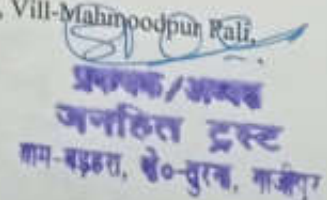 Vill-Mahmoodpur Pali,
प्रबन्धक/अध्यक्ष
जनहित ट्रस्ट
ग्राम-बड़हरा, पो०-तुरना, गाजीपुर